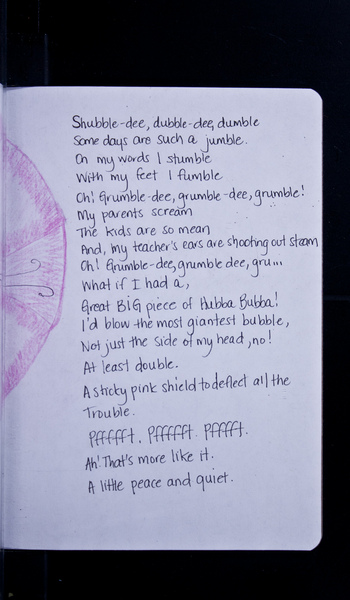 Shubble-dee, dubble-dee, dumble
Some days are such a jumble.
On my words I stumble
With my feet I fumble
Oh! Grumble-dee, grumble-dee, grumble!
My parents scream
The kids are so mean
And, my teacher's ears are shooting out steam
Oh! Grumble-dee, grumble dee, gru...
What if I had a,
Great BIG piece of Hubba Bubba!
I'd blow the most giantest bubble,
Not just the side of my head, no!
At least double.
A sticky pink shield to deflect all the
Trouble.
Pffffft. Pffffft. Pfffft.
Ah! That's more like it.
A little peace and quiet.